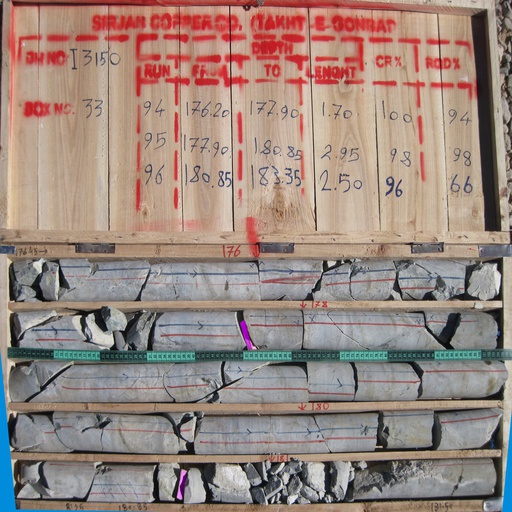 SIRJAN COPPER CO. (TAKHT-E-GONBAD
DEPTH
BH NO: I3150 RUN FROM TO LENGHT CR% RQD%
BOX NO. 33 94 176.20 177.90 1.70 100 94
95 177.90 180.85 2.95 98 98
96 180.85 183.35 2.50 96 66
176
178
180